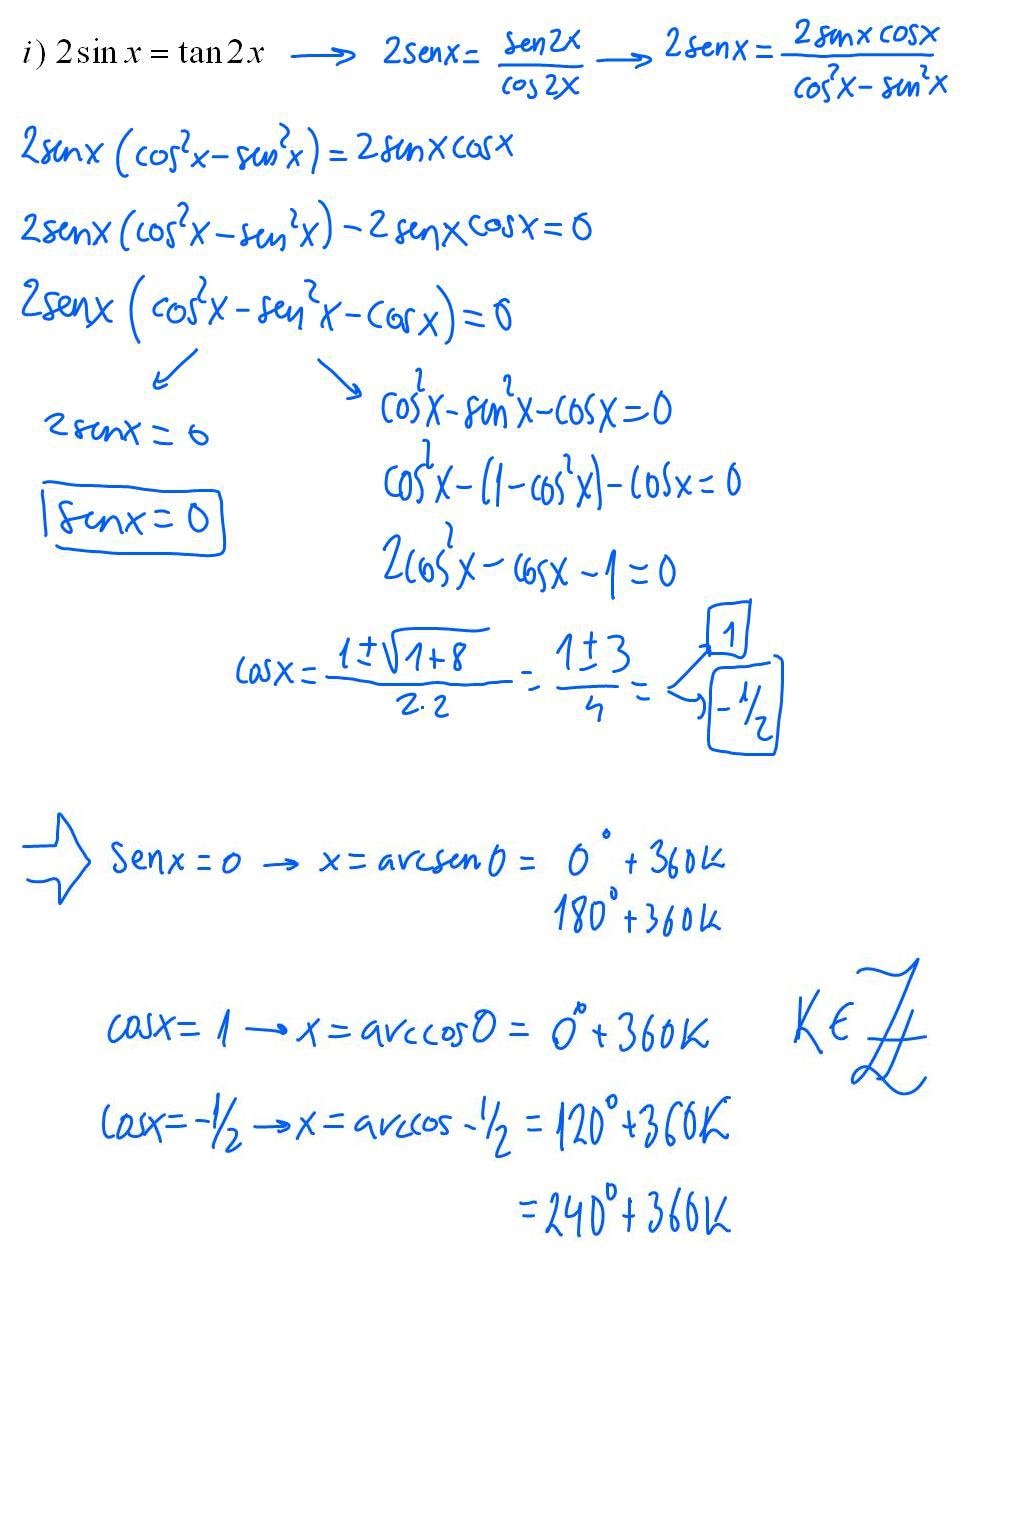 i) 2 sin x = tan 2x ⟶ 2senx = sen2x/cos2x ⟶ 2senx = 2senxcosx/cos²x-sen²x
2senx (cos²x-sen²x) = 2senxcosx
2senx (cos²x-sen²x) - 2senxcosx = 0
2senx (cos²x-sen²x-cosx) = 0
cos²x-sen²x-cosx=0
2senx = 0
cos²x-(1-cos²x)-cosx=0
senx = 0
2cos²x-cosx-1=0
cosx = 1±√1+8/2·2 = 1±3/4 = 1
-1/2
⇒ senx = 0 → x = arcsen0 = 0° + 360K
180° + 360K
cosx = 1 → x = arccos0 = 0° + 360K K∈ℤ
cosx = -1/2 → x = arccos -1/2 = 120° + 360K
= 240° + 360K